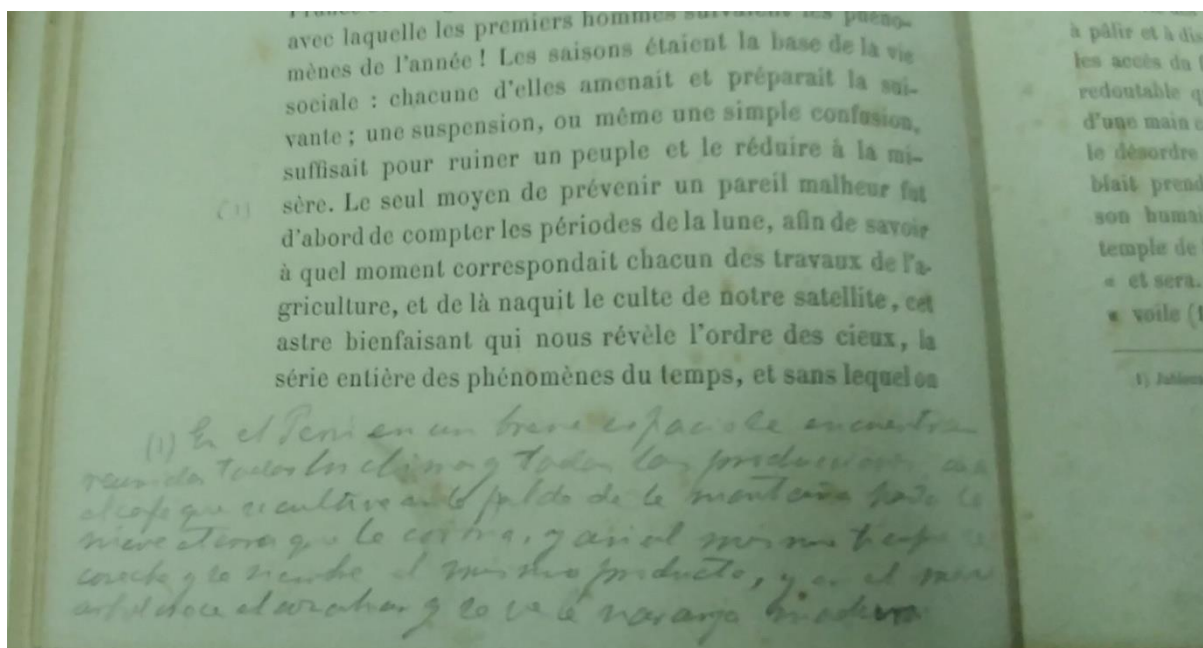 avec laquelle les premiers hommes suivaient les phéno-
mènes de l'année ! Les saisons étaient la base de la vie
sociale : chacune d'elles amenait et préparait la sui-
vante ; une suspension, ou même une simple confusion,
suffisait pour ruiner un peuple et le réduire à la mi-
(1) sère. Le seul moyen de prévenir un pareil malheur fut
d'abord de compter les périodes de la lune, afin de savoir
à quel moment correspondait chacun des travaux de l'a-
griculture, et de là naquit le culte de notre satellite, cet
astre bienfaisant qui nous révèle l'ordre des cieux, la
série entière des phénomènes du temps, et sans lequel on
(1) En el Perú en un breve espacio se encuentran
reunidos todos los climas y todas las producciones
el cafe que se cultiva en la falda de la montaña
nieve eterna que la corona, y asi al mismo tiempo se
cosecha y se siembra el mismo producto, y en el mismo
arbol el azahar y se ve la naranja madura
à pâlir et à dis
les accès du
redoutable q
d'une main
le désordre
blait prend
son humai
temple de
« et sera.
« voile (1